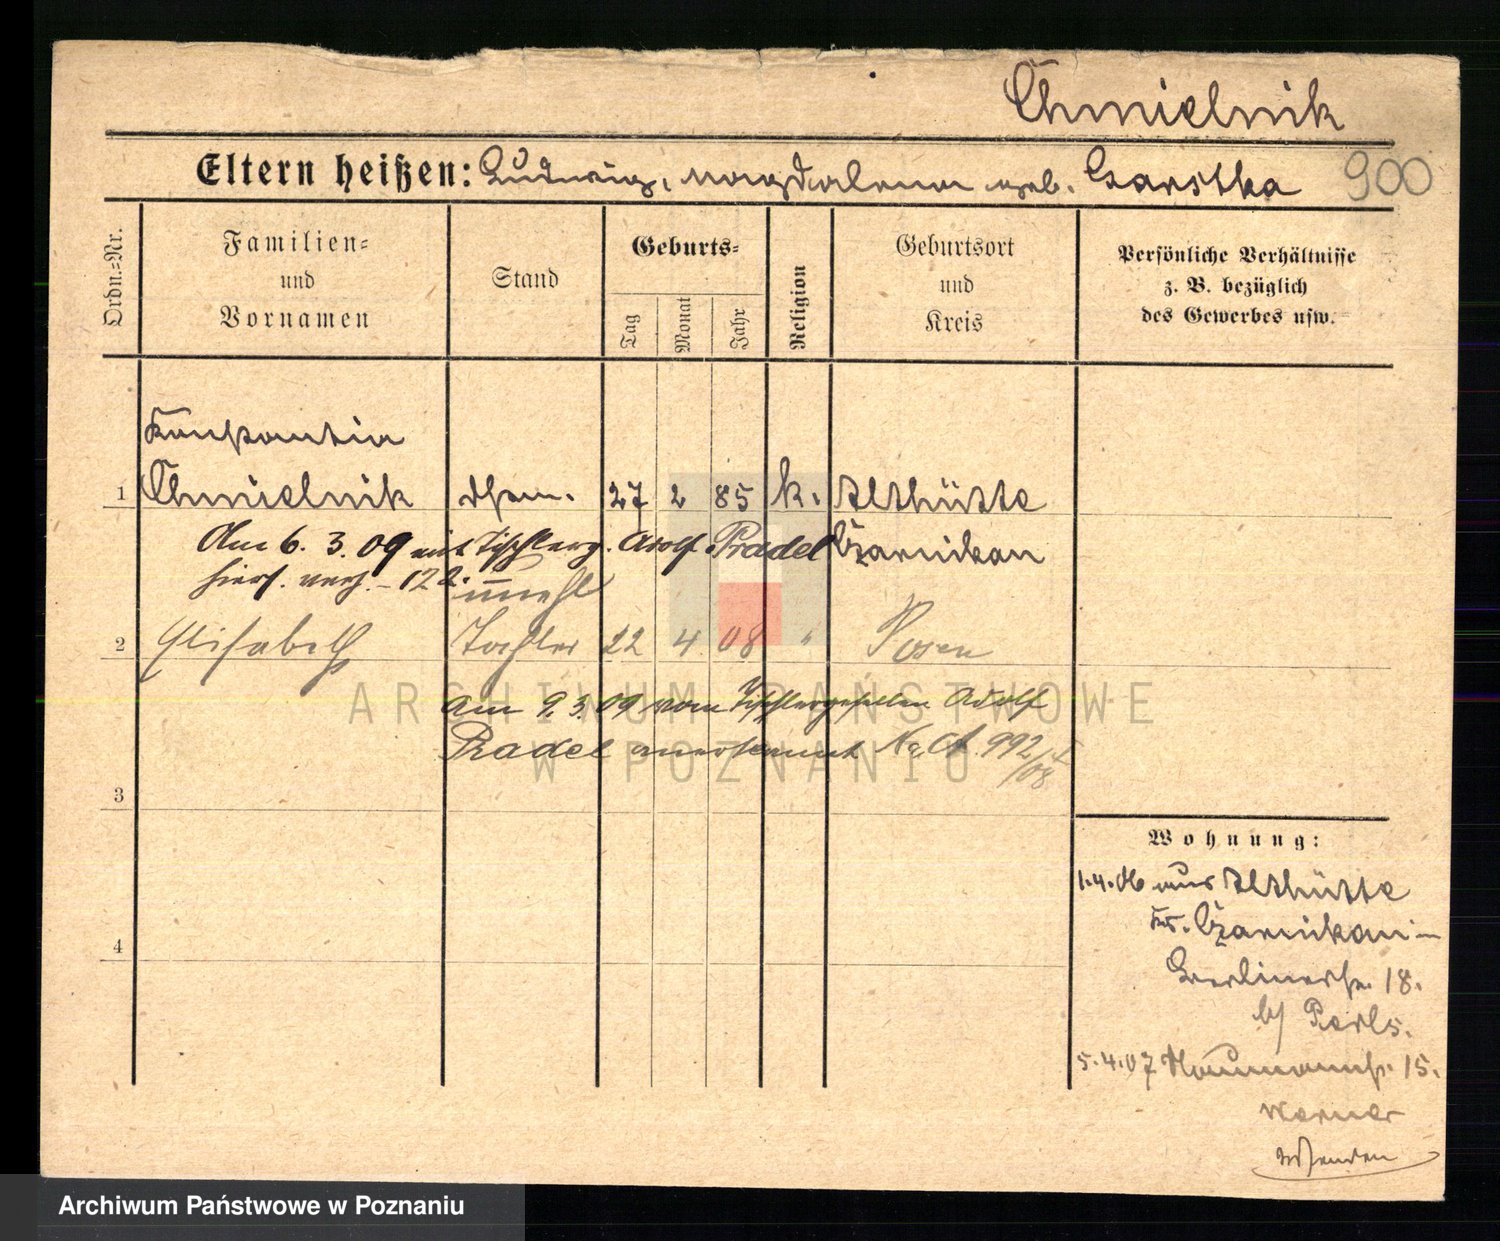 Chmielnik
Eltern heißen: Ludwig, Magdalena geb. Garstka
900
Ordn.=Nr.
Familien=
und
Vornamen
Stand
Geburts=
Tag
Monat
Jahr
Religion
Geburtsort
und
Kreis
Persönliche Verhältnisse
z. B. bezüglich
des Gewerbes usw.
Konstantia
1 Chmielnik 27 2 85 k. Althütte
Am 6. 3. 09 mit Tischlerg. Adolf Pradel Czarnikau
hiers. verh.
unehl
2 Elisabeth Tochter 22 4 08 " Posen
Am 9. 3. 09 vom Tischlergesellen Adolf
Pradel anerkannt No. A. 992/08
3
4
Wohnung:
1.4.06 aus Althütte
Kr. Czarnikau
Berlinerstr. 18.
b/ Perls.
5.4.07 Naumannstr. 15.
Werner
Wenden
ARCHIWUM PAŃSTWOWE
W POZNANIU
Archiwum Państwowe w Poznaniu